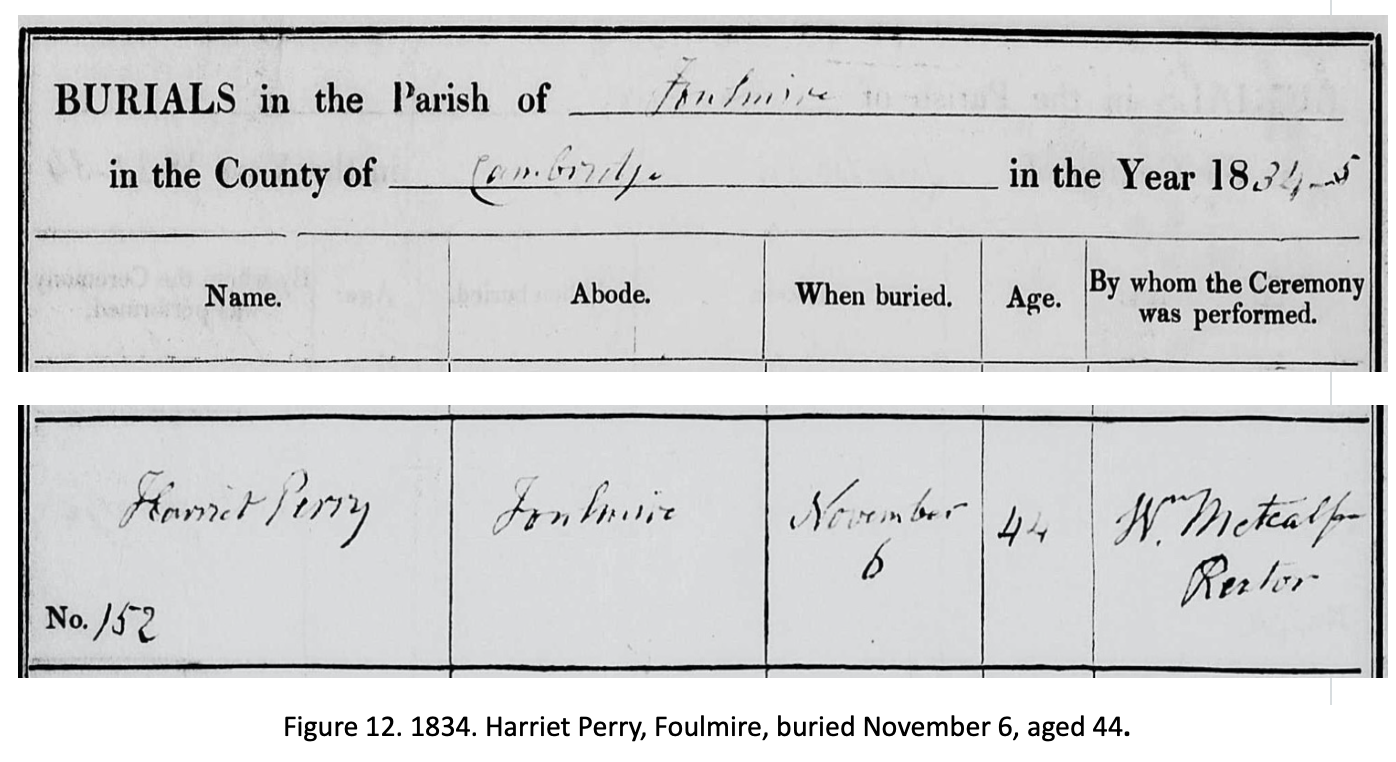 BURIALS in the Parish of Foulmire
in the County of Cambridge in the Year 1834-5
Name. Abode. When buried. Age. By whom the Ceremony
was performed.
Harriet Perry Foulmire November 44 Wm. Metcalfe
6 Rector
No. 152
Figure 12. 1834. Harriet Perry, Foulmire, buried November 6, aged 44.